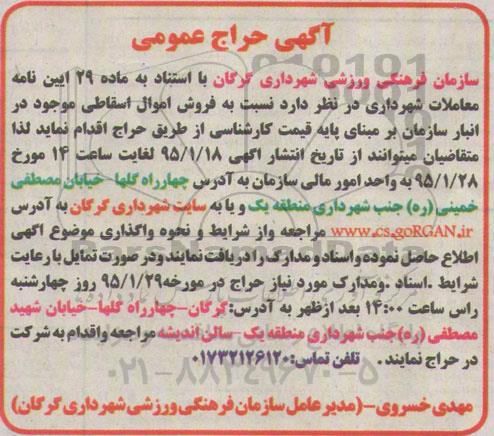 آگهی حراج عمومی
سازمان فرهنگی ورزشی شهرداری گرگان با استناد به ماده ۲۹ ایین نامه
معاملات شهرداری در نظر دارد نسبت به فروش اموال اسقاطی موجود در
انبار سازمان بر مبنای پایه قیمت کارشناسی از طریق حراج اقدام نماید لذا
متقاضیان میتوانند از تاریخ انتشار اگهی ۹۵/۱/۱۸ لغایت ساعت ۱۴ مورخ
۹۵/۱/۲۸ به واحد امور مالی سازمان به آدرس چهارراه گلها - خیابان مصطفی
خمینی (ره) جنب شهرداری منطقه یک و یا به سایت شهرداری گرگان به آدرس
www.cs.goRGAN.ir مراجعه واز شرایط و نحوه واگذاری موضوع اگهی
اطلاع حاصل نموده و اسناد و مدارک را دریافت نمایند ودر صورت تمایل با رعایت
شرایط .اسناد .ومدارک مورد نیاز حراج در مورخه۹۵/۱/۲۹ روز چهارشنبه
راس ساعت ۱۴:۰۰ بعد ازظهر به آدرس:گرگان-چهارراه گلها-خیابان شهید
مصطفی (ره) جنب شهرداری منطقه یک -سالن اندیشه مراجعه واقدام به شرکت
در حراج نمایند . تلفن تماس:۰۱۷۳۲۱۲۶۱۲۰
۰۲۱-۸۸۳۴۹۶۷۰-۵
مهدی خسروی-(مدیر عامل سازمان فرهنگی ورزشی شهرداری گرگان)